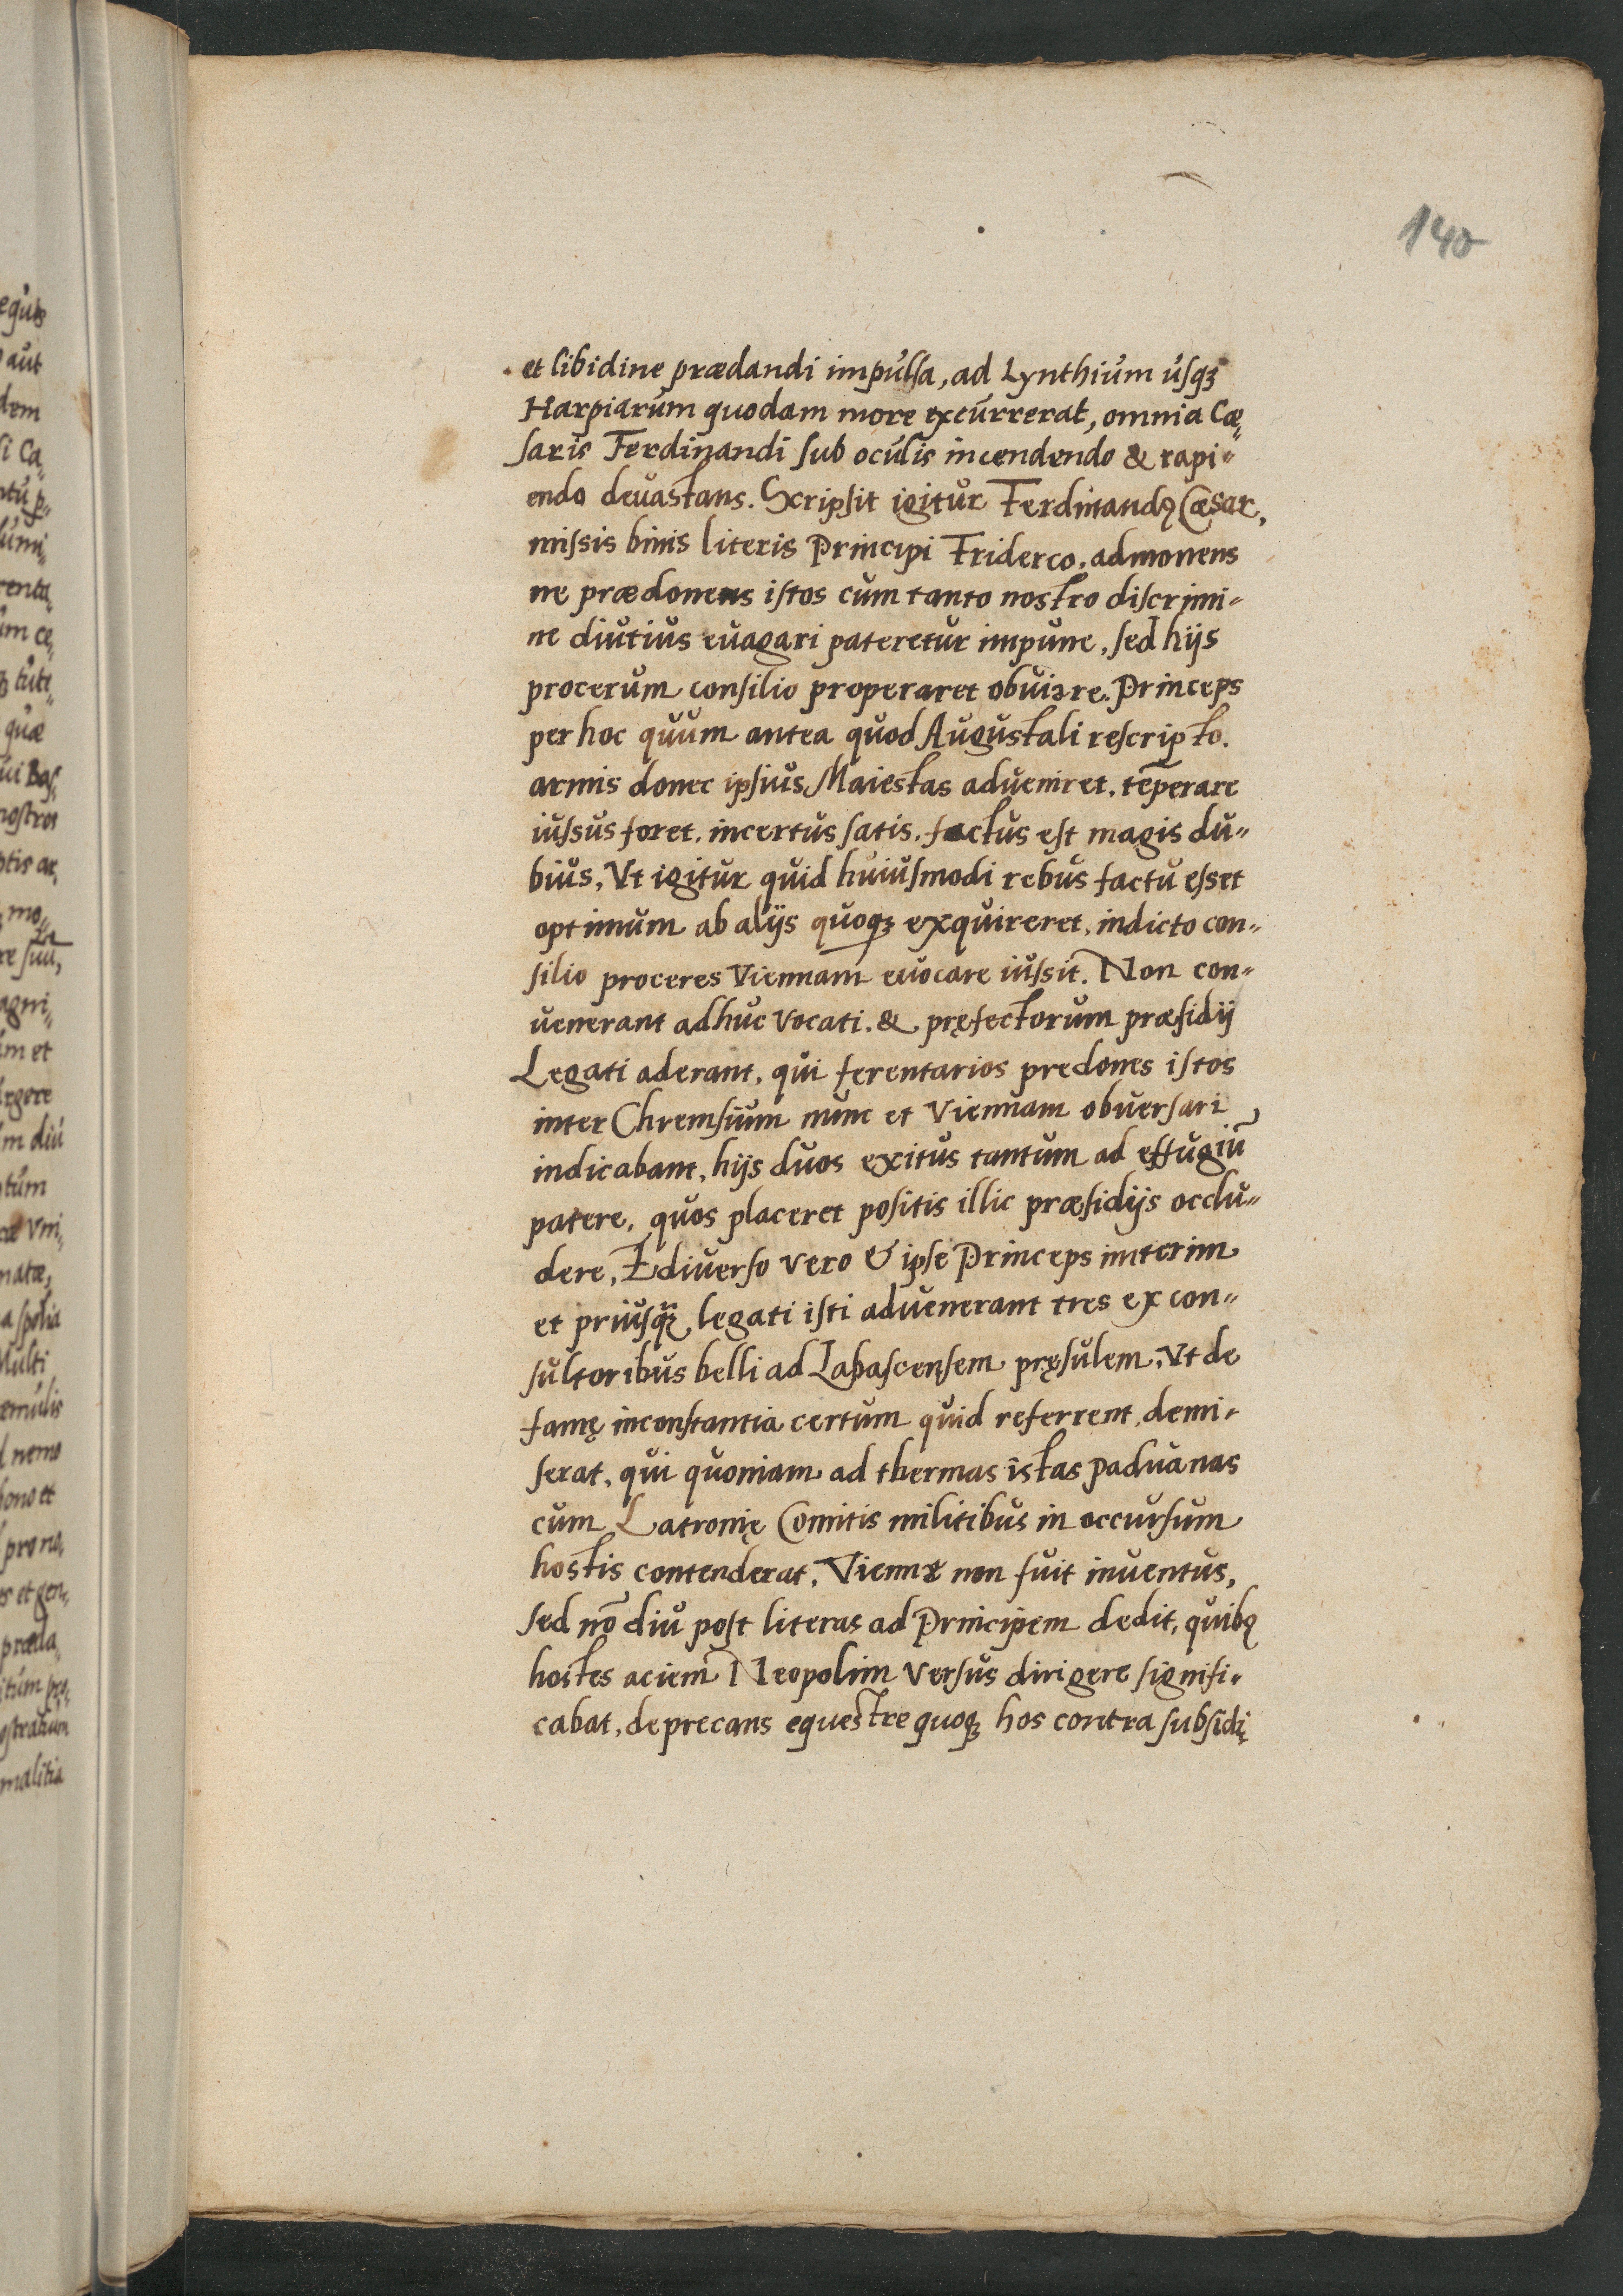 140
et libidine prædandi impulsa, ad Lynthium usqꝫ
Harpiarum quodam more excurrerat, omnia Cæ„
saris Ferdinandi sub oculis incendendo & rapi„
endo deuastans. Scripsit igitur Ferdinandꝯ Cæsar,
missis binis literis Principi Friderco, admonens
ne prædonens istos cum tanto nostro discrimi„
ne diutius euagari pateretur impune, sed hijs
procerum consilio properaret obuiare. Princeps
per hoc quum antea quod Augustali rescripto.
armis donec ipsius Maiestas adueniret, tēperare
iussus foret, incertus satis, factus est magis du„
bius, Vt igitur quid huiusmodi rebus factu esset
optimum ab alijs quoqꝫ exquireret, indicto con„
silio proceres Viennam euocare iussit. Non con„
uenerant adhuc vocati. & pręfectorum præsidij
Legati aderant, qui ferentarios predones istos
inter Chremsium nunc et Viennam obuersari
indicabant, hijs duos exitus tantum ad effugiū
patere, quos placeret positis illic præsidijs occlu„
dere, E diuerso vero & ipse Princeps interim
et priusqꝫ legati isti aduenerant tres ex con„
sultoribus belli ad Labascensem pręsulem, Vt de
famę inconstantia certum quid referrent, demi„
serat, qui quoniam ad thermas istas Paduanas
cum Latronię Comitis militibus in occursum
hostis contenderat, Viennę non fuit inuentus,
sed nō diu post literas ad Principem dedit, quibꝯ
hostes aciem Neopolim versus dirigere signifi„
cabat, deprecans equestre quoqꝫ hos contra subsidį